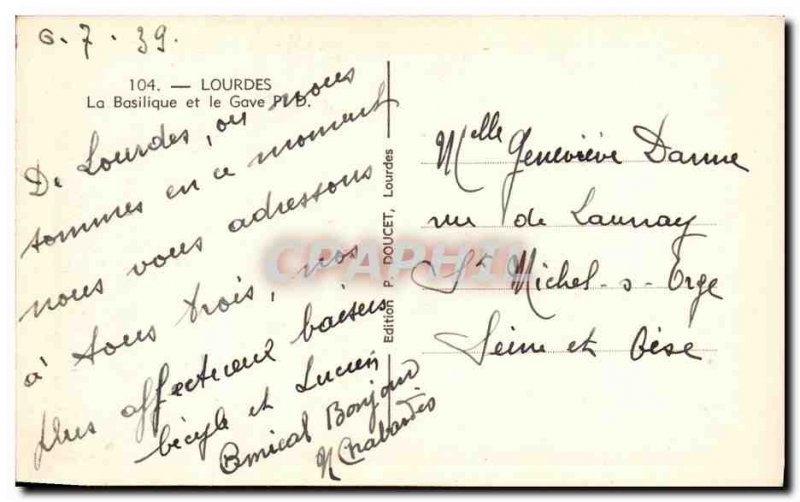 6.7.39.
104. — LOURDES
La Basilique et le Gave P. D.
De Lourdes, où nous
sommes en ce moment
nous vous adressons
à tous trois, nos
plus affectueux baisers
et Lucien
Amical Bonjour
Edition P. DOUCET, Lourdes
CPAPHIL
Melle Geneviève Danne
rue de Launay
St Michel-s-Orge
Seine et Oise